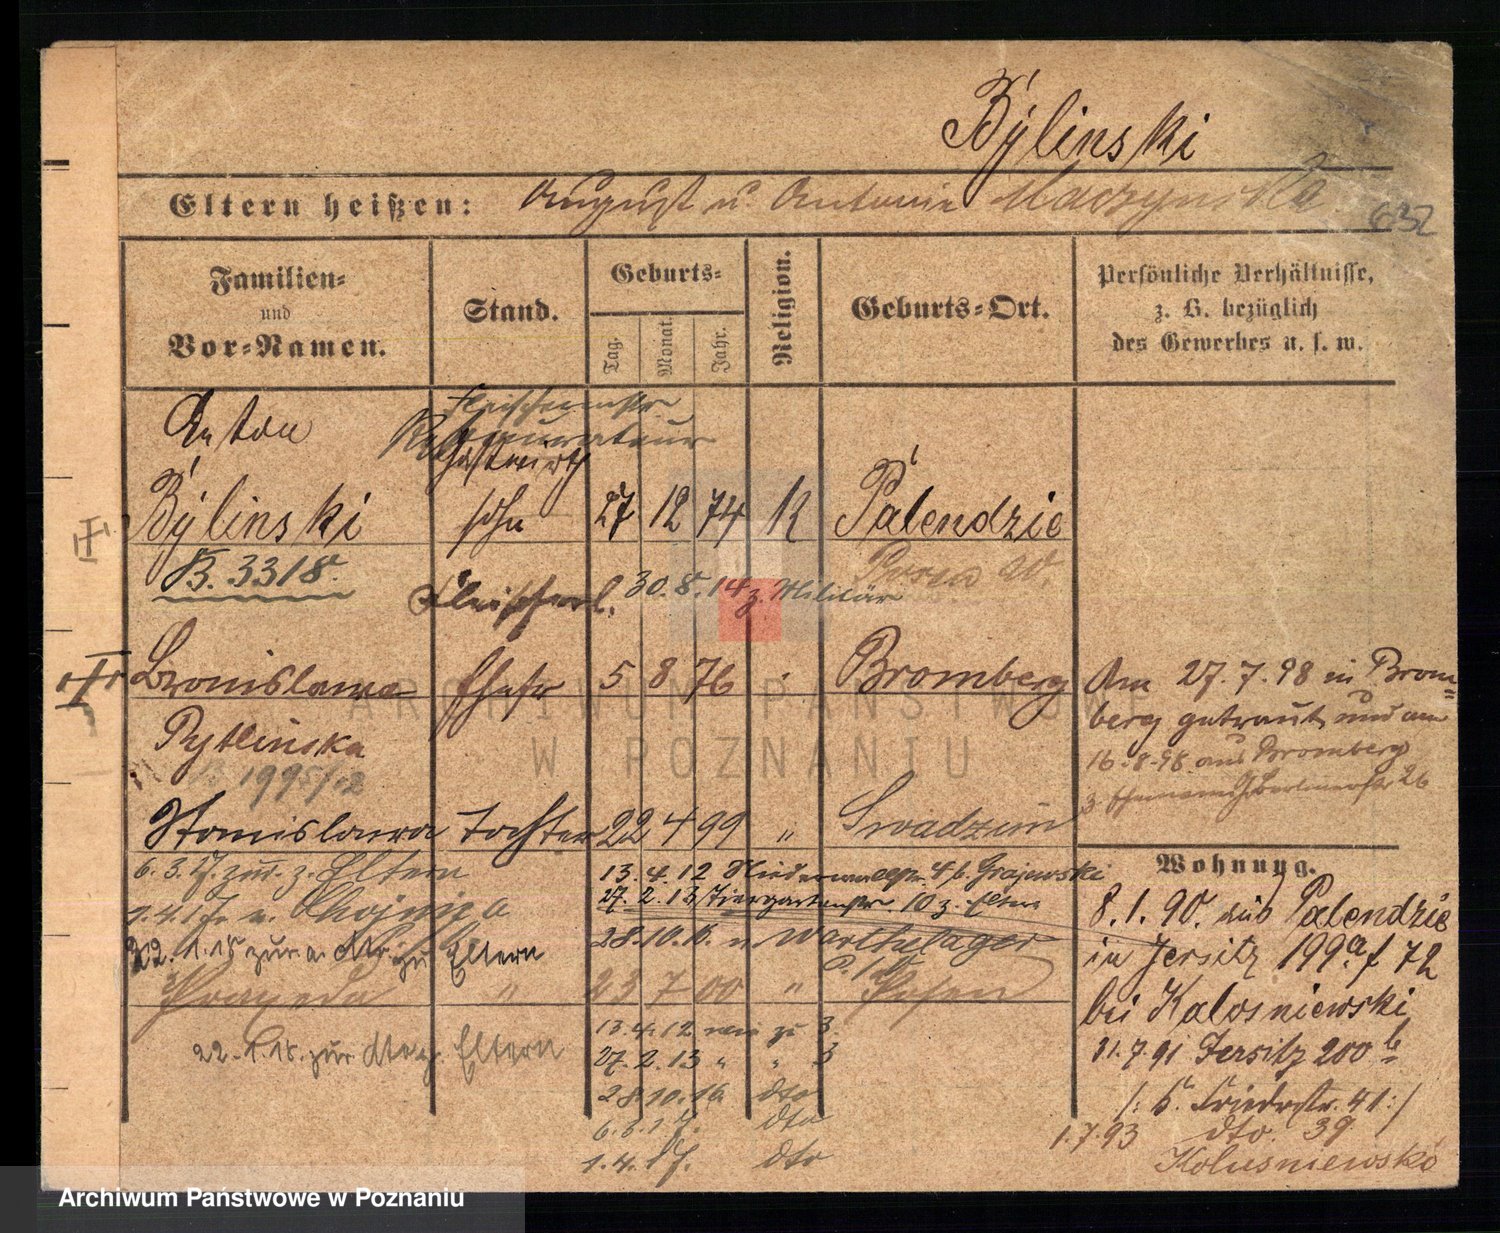 Bylinski
Eltern heißen: August u. Antonie
632
Familien-
und
Vor-Namen.
Stand.
Geburts-
Tag.
Monat.
Jahr.
Religion.
Geburts-Ort.
Persönliche Verhältnisse,
z. B. bezüglich
des Gewerbes u. s. w.
Fleischermstr
Anton Restaurateur
Gastwirth
Bylinski sohn 27. 12 74 K Palendzie
B. 3318. Posen W.
Fleischerl. 30.8.14 z. Militär
Bronislawa Ehefr 5 8 76 Bromberg
Pytlinska
1995/02
Am 27.7.98 in Brom=
berg getraut und am
16.8.98 aus Bromberg
z. Ehemann Berlinerstr 26
Stanislawa Tochter 22 4 99 "
6.3.17. zur. z. Eltern
13.4.12 4 b. Grajewski
27.2.13 Tiergartenstr. 10 z. Eltern
1.4.17 n.
28.10.16. n. Warthelager
22.1.18 zur. a. zu Eltern
Praxeda " 23 7 00 " Posen
22.1.18. zur. Eltern
13.4.12 wie zu 3.
27.2.13 " " 3
28.10.16 dto
6.3.17. dto
1.4.17. dto
Wohnung.
8.1.90. aus Palendzie
in Jersitz 199a f 72
bei Kalosniewski
11.7.91 Jersitz 200 b
/: Friedrstr. 41 :/
1.7.93 dto. 39
Kolusniewski
ARCHIWUM PAŃSTWOWE
W POZNANIU
Archiwum Państwowe w Poznaniu